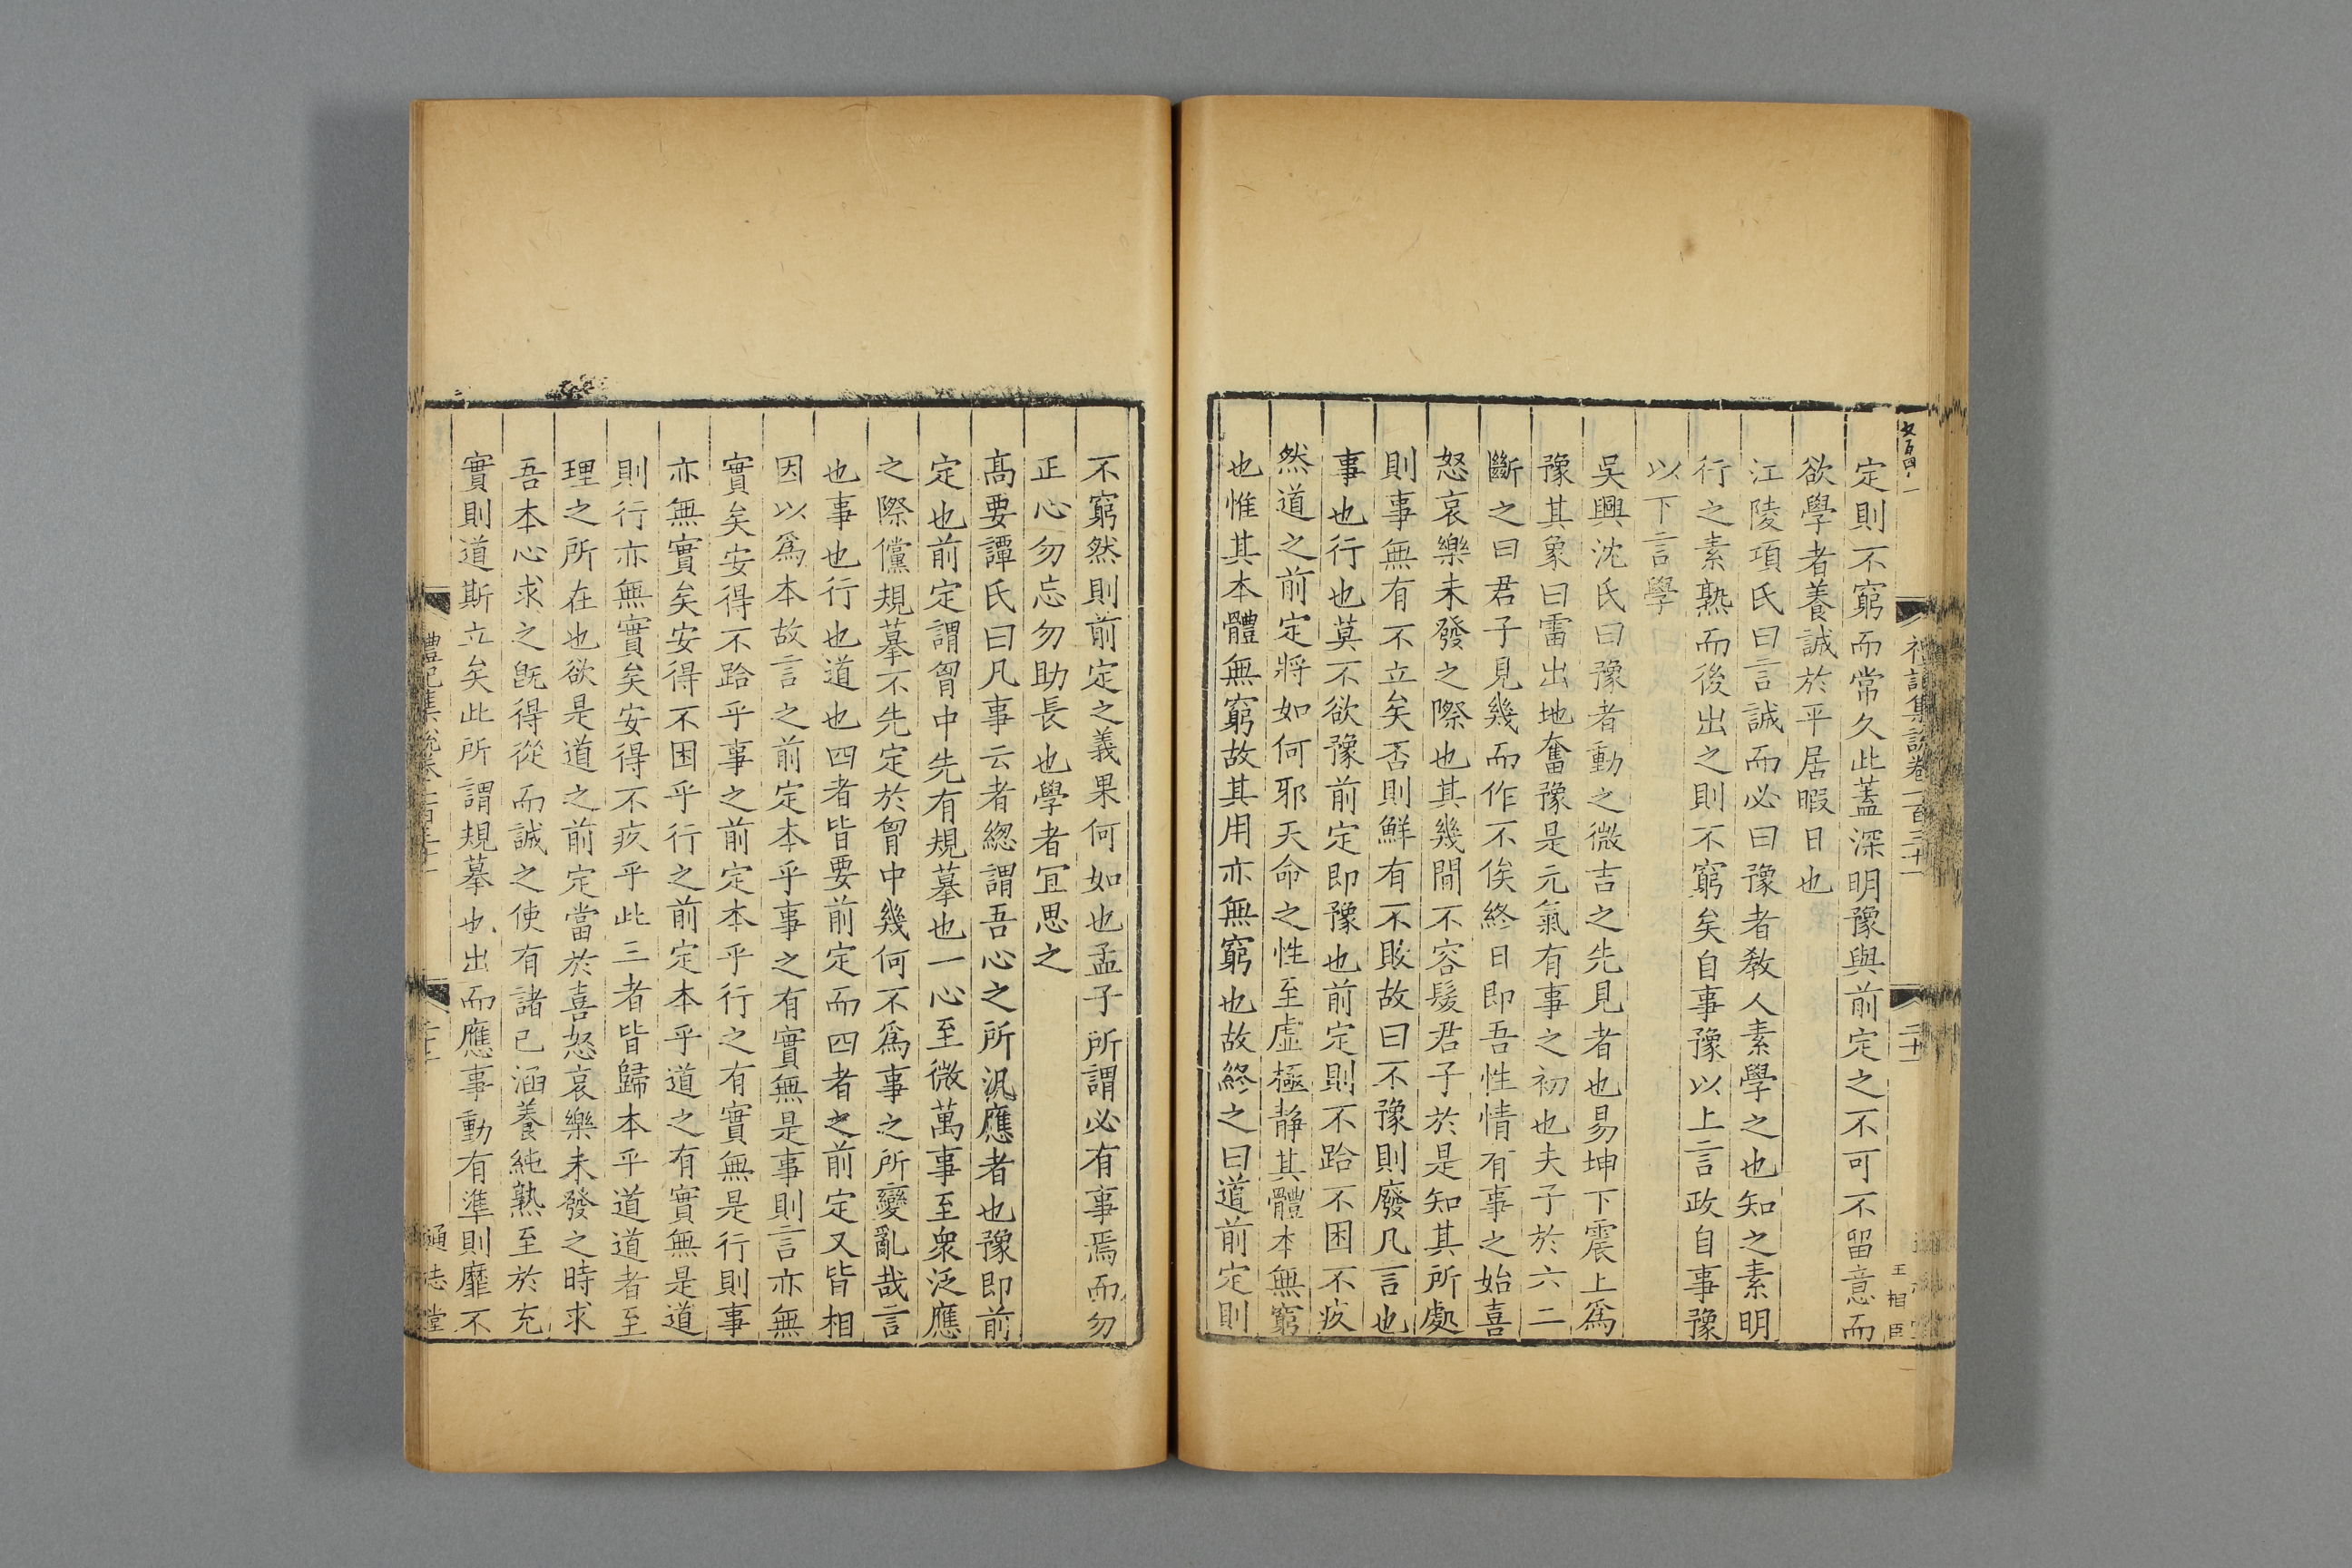 禮記集說卷一百三十一
二十一
王相臣
定則不窮而常久此蓋深明豫與前定之不可不留意而
欲學者養誠於平居暇日也
江陵項氏曰言誠而必曰豫者教人素學之也知之素明
行之素熟而後出之則不窮矣自事豫以上言政自事豫
以下言學
吳興沈氏曰豫者動之微吉之先見者也易坤下震上爲
豫其象曰雷出地奮豫是元氣有事之初也夫子於六二
斷之曰君子見幾而作不俟終日即吾性情有事之始喜
怒哀樂未發之際也其幾閒不容髮君子於是知其所處
則事無有不立矣否則鮮有不敗故曰不豫則廢凡言也
事也行也莫不欲豫前定即豫也前定則不跲不困不疚
然道之前定將如何邪天命之性至虛極静其體本無窮
也惟其本體無窮故其用亦無窮也故終之曰道前定則
不窮然則前定之義果何如也孟子所謂必有事焉而勿
正心勿忘勿助長也學者宜思之
髙要譚氏曰凡事云者緫謂吾心之所汎應者也豫即前
定也前定謂胷中先有規摹也一心至微萬事至衆泛應
之際儻規摹不先定於胷中幾何不爲事之所變亂哉言
也事也行也道也四者皆要前定而四者之前定又皆相
因以爲本故言之前定本乎事之有實無是事則言亦無
實矣安得不跲乎事之前定本乎行之有實無是行則事
亦無實矣安得不困乎行之前定本乎道之有實無是道
則行亦無實矣安得不疚乎此三者皆歸本乎道道者至
理之所在也欲是道之前定當於喜怒哀樂未發之時求
吾本心求之旣得從而誠之使有諸己涵養純熟至於充
實則道斯立矣此所謂規摹也出而應事動有準則靡不
通志堂